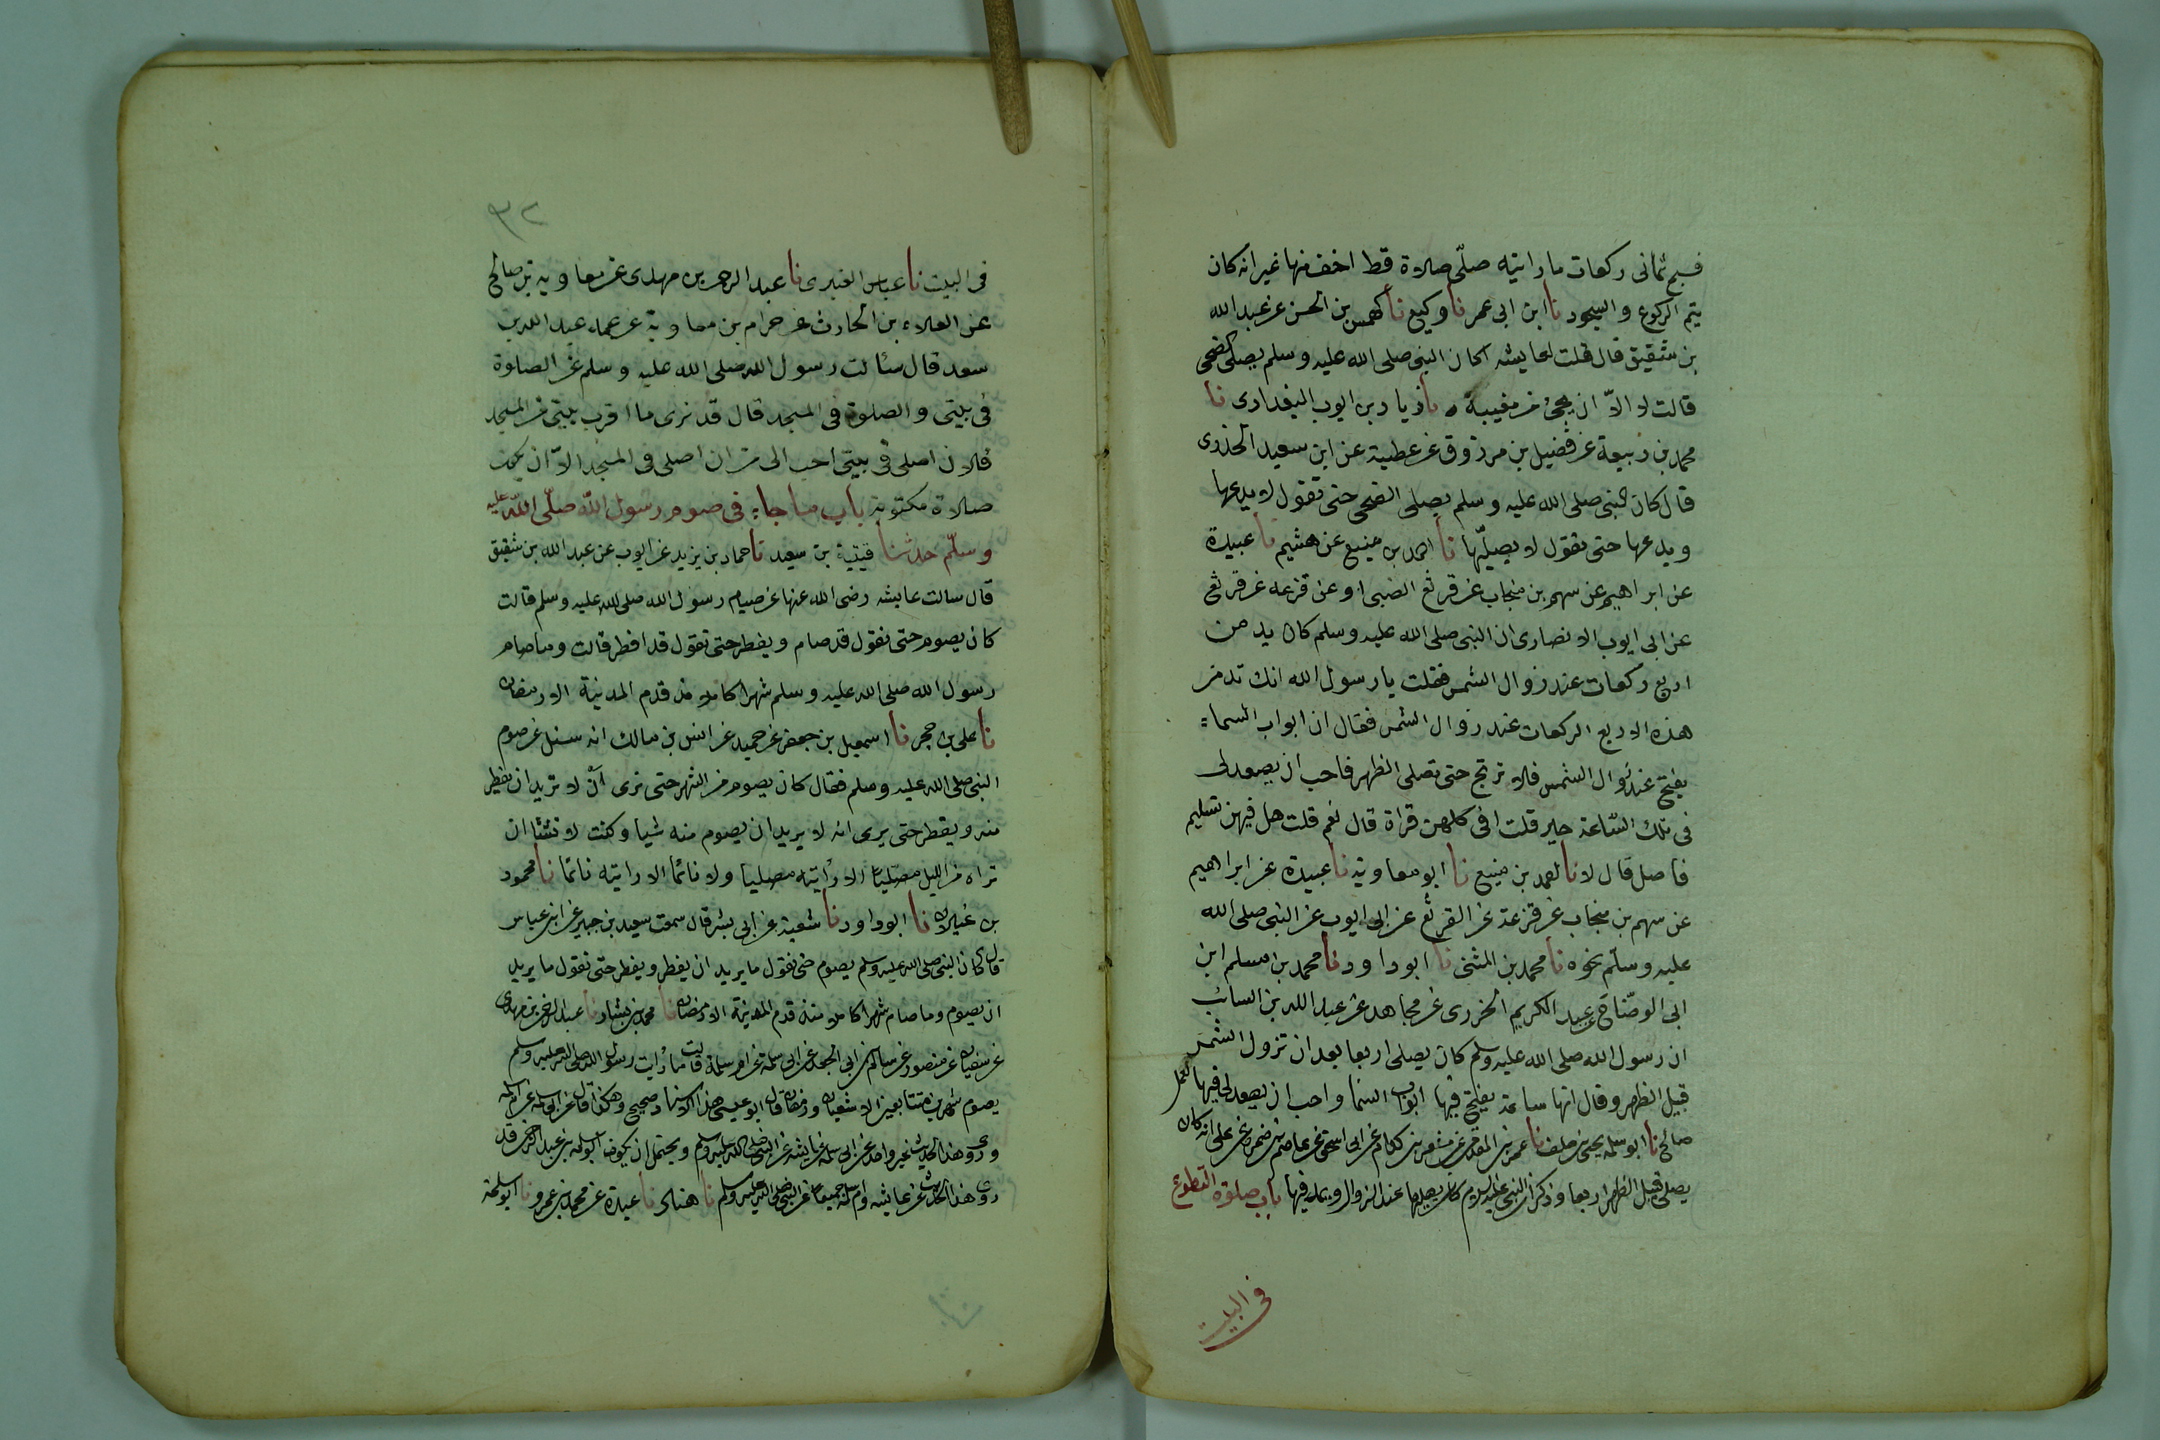 فسبح ثمانى ركعات ما رايته صلّى صلاة قط اخف منها غير انه كان
يتم الركوع والسجود نا ابن ابى عمر نا وكيع نا كهمس بن الحسن عن عبد الله
بن شقيق قال قلت لعايشه اكان النبى صلى الله عليه وسلم يصلى الضحى
قالت لا الاّ ان يجئ من مغيبه نا زياد بن ايوب البغدادى نا
محمد بن ربيعة عن فضيل بن مرزوق عن عطية عن ابى سعيد الخدرى
قال كان النبى صلى الله عليه وسلم يصلى الضحى حتى نقول لا يدعها
ويدعها حتى نقول لا يصيلّها نا احمد بن منيع عن هشيم نا عبيدة
عن ابراهيم عن سهم بن منجاب عن قرثع الضبى او عن قزعه عن قرثع
عن ابى ايوب الانصارى ان النبى صلى الله عليه وسلم كان يدمن
اربع ركعات عند زوال الشمس فقلت يا رسول الله انك تدمن
هذه الاربع الركعات عند زوال الشمس فقال ان ابواب السماء
يفتح عند زوال الشمس فلا ترتج حتى تصلى الظهر فاحب ان يصعد لى
فى تلك السّاعة خير قلت افى كلهن قراة قال نعم قلت هل فيهن تسليم
فاصل قال لا نا احمد بن منيع نا ابو معاوية نا عبيدة عن ابراهيم
عن سهم بن منجاب عن قزعة عن القرثع عن ابى ايوب عن النبى صلى الله
عليه وسلّم نحوه نا محمد بن المثنى نا ابو داود نا محمد بن مسلم ابن
ابى الوضّاح عن عبد الكريم الجزرى عن مجاهد عن عبد الله بن السائب
ان رسول الله صلى الله عليه وسلم كان يصلى اربعا بعد ان تزول الشمس
قبل الظهر وقال انها ساعة يفتح فيها ابواب السما واحب ان يصعد لى فيها عمل
صالح نا ابو سلمه يحيى بن خلف نا عمر بن على المقدمى عن مسعر بن كدام عن ابى اسحق عن عاصم بن ضمرة عن على انه كان
يصلى قبل الظهر اربعا وذكر ان النبى عليه السلام كان يصليها عند الزوال ويمد فيها باب صلوة التطوع
فى البيت
٣٢
فى البيت نا عباس العنبرى نا عبد الرحمن بن مهدى عن معاويه بن صالح
عن العلاء بن الحارث عن حرام بن معاوية عن عمه عبد الله بن
سعد قال سئالت رسول الله صلى الله عليه وسلم عن الصلوة
فى بيتى والصلوة فى المسجد قال قد ترى ما اقرب بيتى من المسجد
فلان اصلى فى بيتى احب الى من ان اصلى فى المسجد الاّ ان يكون
صلاة مكتوبة باب ما جاء فى صوم رسول الله صلّى الله عليه
وسلّم حدثنا قتيبة بن سعيد نا حماد بن يزيد عن ايوب عن عبد الله بن شقيق
قال سالت عايشه رضى الله عنها عن صيام رسول الله صلى الله عليه وسلم قالت
كان يصوم حتى نقول قد صام ويفطر حتى نقول قد افطر قالت وما صام
رسول الله صلى الله عليه وسلم شهرا كاملا منذ قدم المدينة الا رمضان
نا على بن حجر نا اسمعيل بن جعفر عن حميد عن انس بن مالك انه سئل عن صوم
النبى صلى الله عليه وسلم فقال كان يصوم من الشهر حتى نرى انّ لا تريد ان يفطر
منه ويفطر حتى يرى انه لا يريد ان يصوم منه شيا وكنت لا تشئا ان
تراه من الليل مصلّيّا الا رأيته مصليا ولا نائما الا رايته نائما نا محمود
بن غيلان نا ابو داود نا شعبة عن ابى بشر قال سمعت سعيد بن جبير عن ابن عباس
قال كان النبى صلى الله عليه وسلم يصوم حتى نقول ما يريد ان يفطر ويفطر حتى نقول ما يريد
ان يصوم وما صام شهرا كاملا منذ قدم المدينة الا رمضان نا محمد بن بشار نا عبد الرحمن بن مهدى
عن سفيان عن منصور عن سالم بن ابى الجعد عن ابى سلمه عن ام سلمة قالت ما رأيت رسول الله صلى الله عليه وسلم
يصوم شهرين متتابعين الا شعبان ورمضان قال ابو عيسى هذا الاسناد صحيح وهكذا قال عن ابى سلمه عن ام سلمه
وروى هذا الحديث غير واحد عن ابى سلمه عن عايشه عن النبى صلى الله عليه وسلم ويحتمل ان يكون ابو سلمه بن عبد الرحمن قد
روى هذا الحديث عن عايشه وام سلمه جميعا عن النبى صلى الله عليه وسلم نا هناد نا عبدة عن محمد بن عمرو نا ابو سلمة